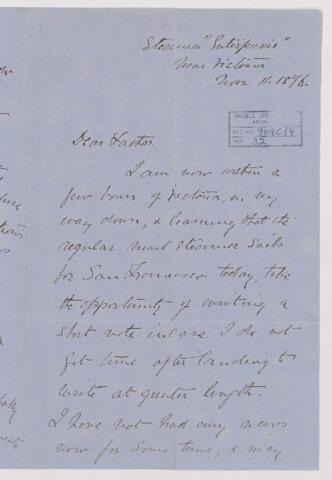 Steamer "Enterprise"
Near Victoria
Nov 11. 1876.
McGILL UN
ARCH
ACC. NO. 909C/4
REF. 32
Dear Father
I am now within a
few hours of Victoria, on my
way down, & learning that the
regular mail steamer sails
for San Francisco today, take
the opportunity of writing a
short note in case I do not
get time after landing to
write at greater length.
I have not had any news
now for some time, & may